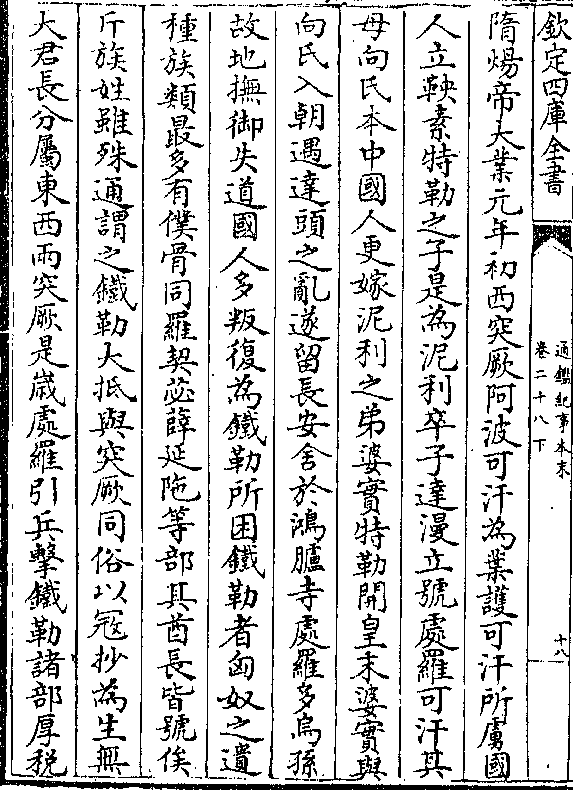 欽定四庫全書
通鑑紀事本末
卷二十八下
十八
隋煬帝大業元年初西突厥阿波可汗為業護可汗所虜國
人立鞅素特勒之子是為泥利卒子達漫立號處羅可汗其
母向氏本中國人更嫁泥利之弟婆實特勒開皇末婆實與
向氏入朝遇達頭之亂遂留長安舍於鴻臚寺處羅多烏孫
故地撫御失道國人多叛復為鐵勒所困鐵勒者匈奴之遺
種族類最多有僕骨同羅契苾薛延陁等部其酋長皆號俟
斤族姓雖殊通謂之鐵勒大抵與突厥同俗以寇抄為生無
大君長分屬東西兩突厥是歲處羅引兵擊鐵勒諸部厚稅